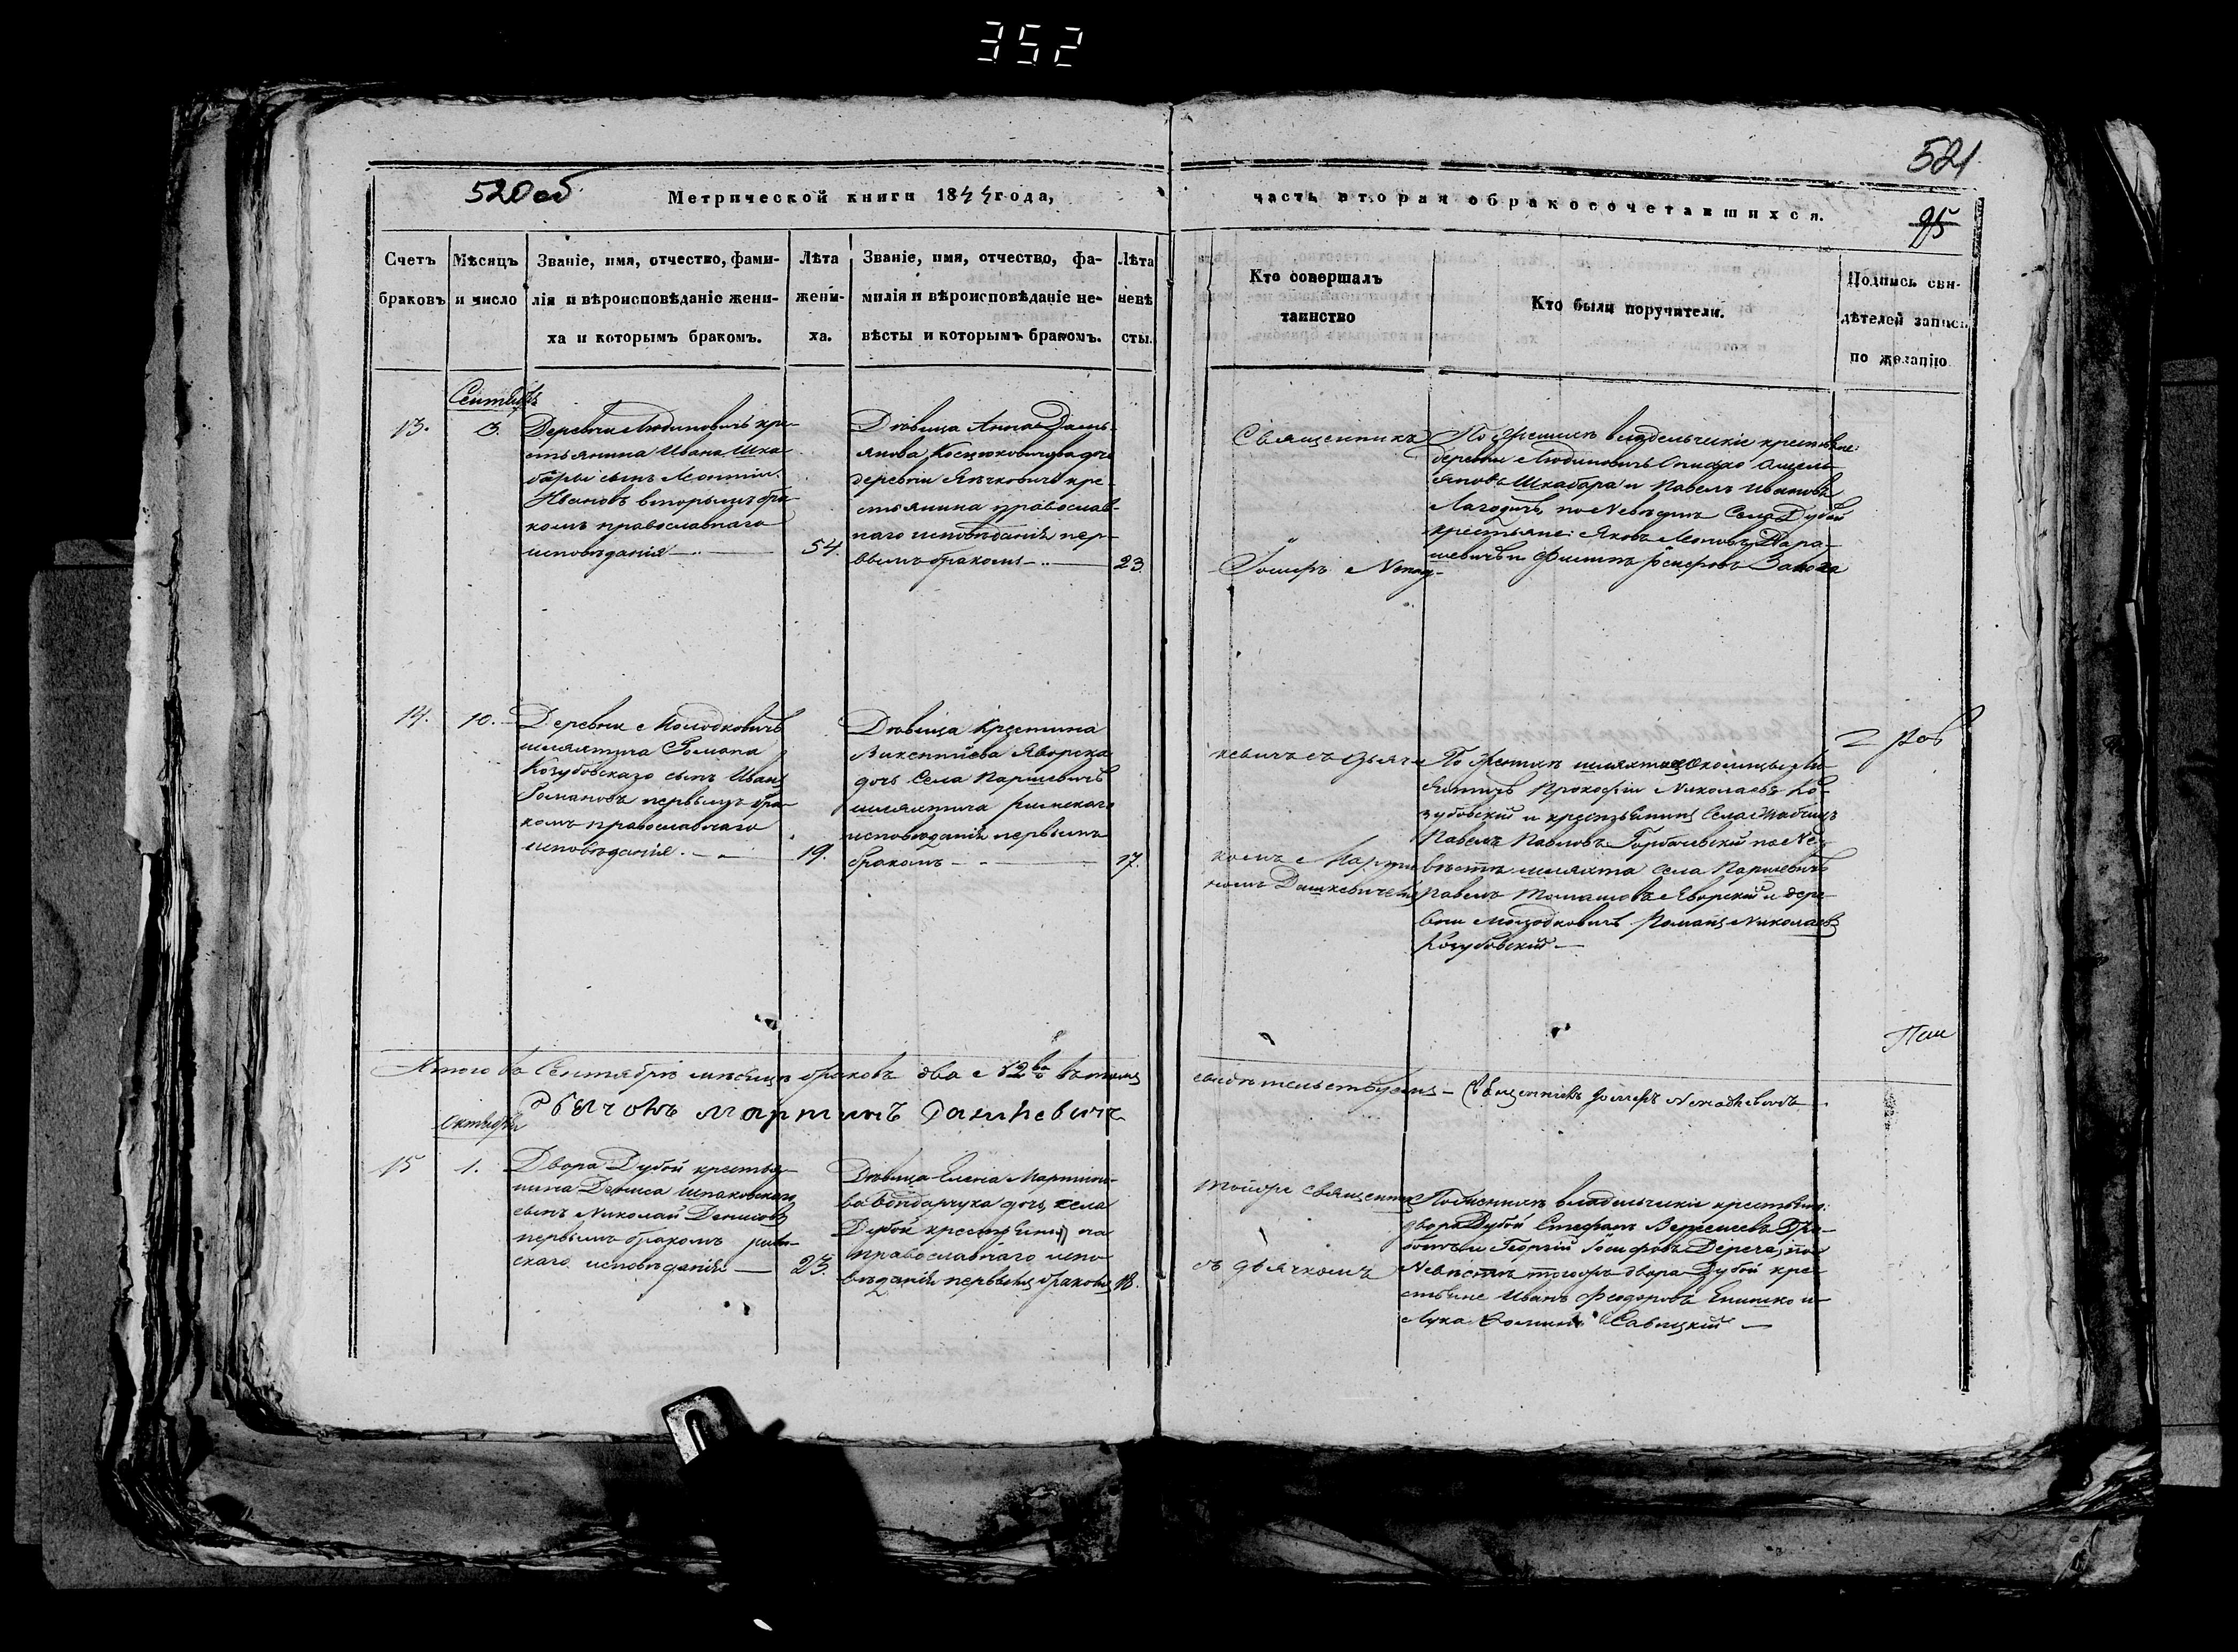 352
520об
Метрической книги 1844 года,
часть вторая о бракосочетавшихся.
521
95
Счетъ
браковъ
Мѣсяцъ
и число
Званіе, имя, отчество, фами-
лія и вѣроисповѣданіе жени-
ха и которымъ бракомъ.
Лѣта
жени-
ха.
Званіе, имя, отчество, фа-
милія и вѣроисповѣданіе не-
вѣсты и которымъ бракомъ.
Лѣта
невѣ
сты.
Кто совершалъ
таинство
Кто были поручители.
Подпись сви-
дѣтелей записи
по желанію
Сентябрь
13.
3.
Деревни Людиновичъ кре-
стьянина Ивана Шка-
бары сынъ Леонтій
Ивановъ вторымъ бра-
комъ православнаго
исповѣданія
54.
Дѣвица Анна Дамь-
янова Костюковичова дочь
деревни Ячковичъ кре-
стьянина православ-
наго исповѣданія пер-
вымъ бракомъ
23.
Священникъ
Іосифъ Непад-
По Женихѣ владельческіе крестьяне:
деревни Людиновичъ Емель-
яновъ Шкабара и Павелъ Ивановъ
Лагодичъ, по Невѣстѣ Села Дубой
крестьяне: Яковъ Дара-
шевичъ и Филипъ Іосифовъ
14.
10.
Деревни Молодковичъ
шляхтича Романа
Козубовскаго сынъ Иванъ
Романовъ первымъ бра-
комъ православнаго
исповѣданія
19.
Дѣвица Крестина
Викентіева Яворска
дочь Села Паршевичъ
шляхтича римскаго
исповѣданія первымъ
бракомъ
17.
кевичъ съ дьяч-
комъ Марти-
номъ Дашкевичемъ
По Женихѣ шляхтичъ Околицы
Прокофій Николаевъ Ко-
зубовскій и крестьянинъ Села
Павелъ Павловъ Горбачевскій по Не-
вѣстѣ шляхта Села Паршевичъ
Павелъ Томашовъ Яворскій и дере-
вни Молодковичъ Романъ Николаевъ
Козубовскій
Итого въ Сентябрѣ мѣсяцѣ браковъ два
свидѣтельствуемъ - Священникъ Іосифъ Непадкевичъ
Мартинъ Дашкевичъ
Октябрь
15
1.
Двора Дубой крестья-
нина Дениса Шпаковскаго
сынъ Николай Денисовъ
первымъ бракомъ рим-
скаго исповѣданія
23.
Дѣвица Елена Мартино-
ва Бондарчука дочь села
Дубой крестьянина
православнаго испо-
вѣданія первымъ бракомъ
18.
тойже священникъ
съ дьячкомъ
По Женихѣ владельческіе крестьяне:
двора Дубой Стефанъ
и Георгій Іосифовъ по
Невѣстѣ тогоже двора Дубой кре-
стьяне Иванъ Феодоровъ и
Лука Савицкій